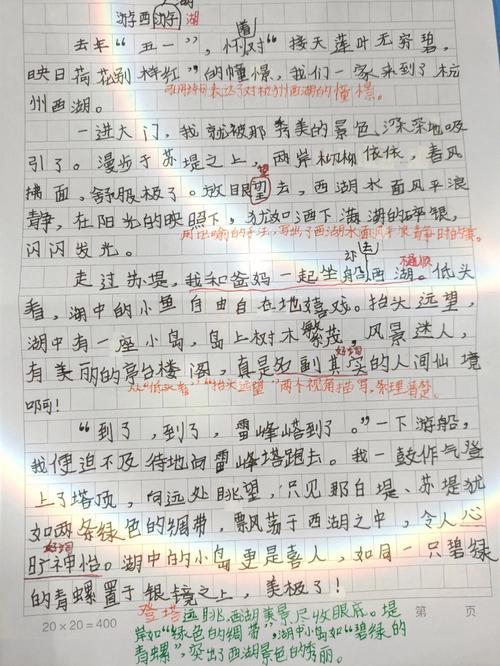 游西游湖
去年“五一”，怀着对“接天莲叶无穷碧，
映日荷花别样红”的憧憬，我们一家来到了杭
州西湖。
引用诗句表达了对杭州西湖的憧憬。
一进大门，我就被那秀美的景色深深地吸
引了。漫步于苏堤之上，两岸柳柳依依，春风
拂面，舒服极了。放眼望去，西湖水面风平浪
静，在阳光的映照下，犹如洒下满湖的碎银，
闪闪发光。
用比喻的手法，写出了西湖水面风平浪静时的美。
走过苏堤，我和爸妈一起坐船去西湖。低头
看，湖中的小鱼自由自在地嬉戏。抬头远望，
湖中有一座小岛，岛上树木繁茂，风景迷人，
有美丽的亭台楼阁，真是名副其实的人间仙境
啊！
好词
从“低头看”“抬头远望”两个视角描写，条理清楚。
“到了，到了，雷峰塔到了。”一下游船，
我便迫不及待地向雷峰塔跑去。我一鼓作气登
上了塔顶，向远处眺望，只见那白堤、苏堤犹
如两条绿色的绸带，飘荡于西湖之中，令人心
旷神怡。湖中的小岛更是喜人，如同一只碧绿
好词
的青螺置于银镜之上，美极了！
登塔远眺，西湖美景尽收眼底。堤
岸如“绿色的绸带”，湖中小岛如“碧绿的
青螺”，突出了西湖景色的秀丽。
20×20=400
第 页